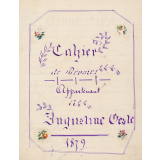 Cahier
de Devoirs
Appartenant
à
Augustine Oeste
1879